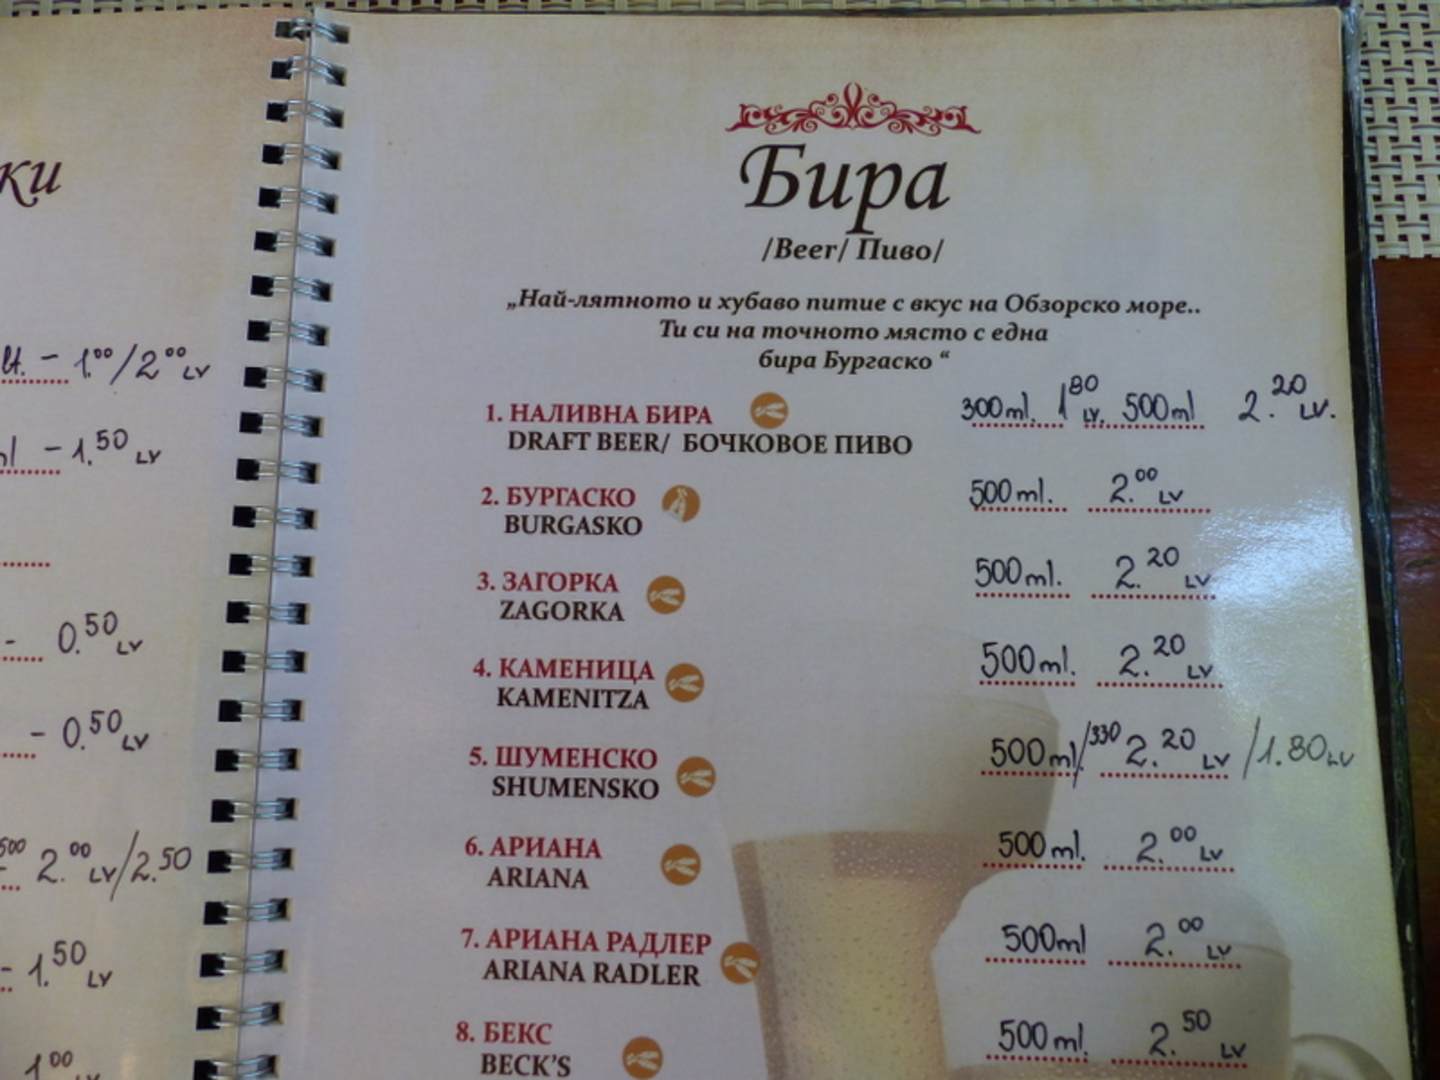 ки
lt. - 1.00/2.00 LV
ml - 1.50 LV
- 0.50 LV
- 0.50 LV
500 2.00 LV/2.50
- 1.50 LV
1.00 LV
Бира
/Beer/ Пиво/
„Най-лятното и хубаво питие с вкус на Обзорско море..
Ти си на точното място с една
бира Бургаско “
1. НАЛИВНА БИРА 300ml. 1.80 LV. 500ml 2.20 LV.
DRAFT BEER/ БОЧКОВОЕ ПИВО
2. БУРГАСКО 500ml. 2.00 LV
BURGASKO
3. ЗАГОРКА 500ml. 2.20 LV
ZAGORKA
4. КАМЕНИЦА 500ml. 2.20 LV
KAMENITZA
5. ШУМЕНСКО 500ml/330 2.20 LV /1.80 LV
SHUMENSKO
6. АРИАНА 500ml. 2.00 LV
ARIANA
7. АРИАНА РАДЛЕР 500ml 2.00 LV
ARIANA RADLER
8. БЕКС 500ml. 2.50 LV
BECK'S